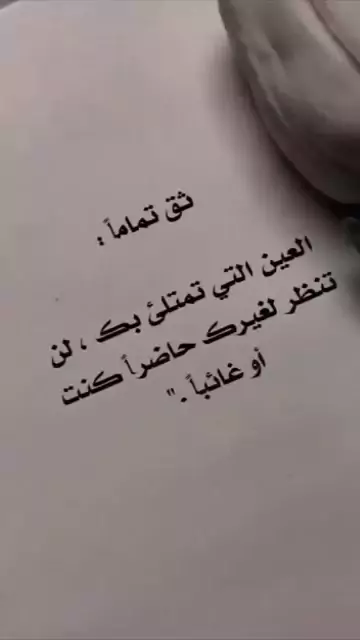 ثق تماماً :
العين التي تمتلئ بك ، لن
تنظر لغيرك حاضراً كنت
أو غائباً ."